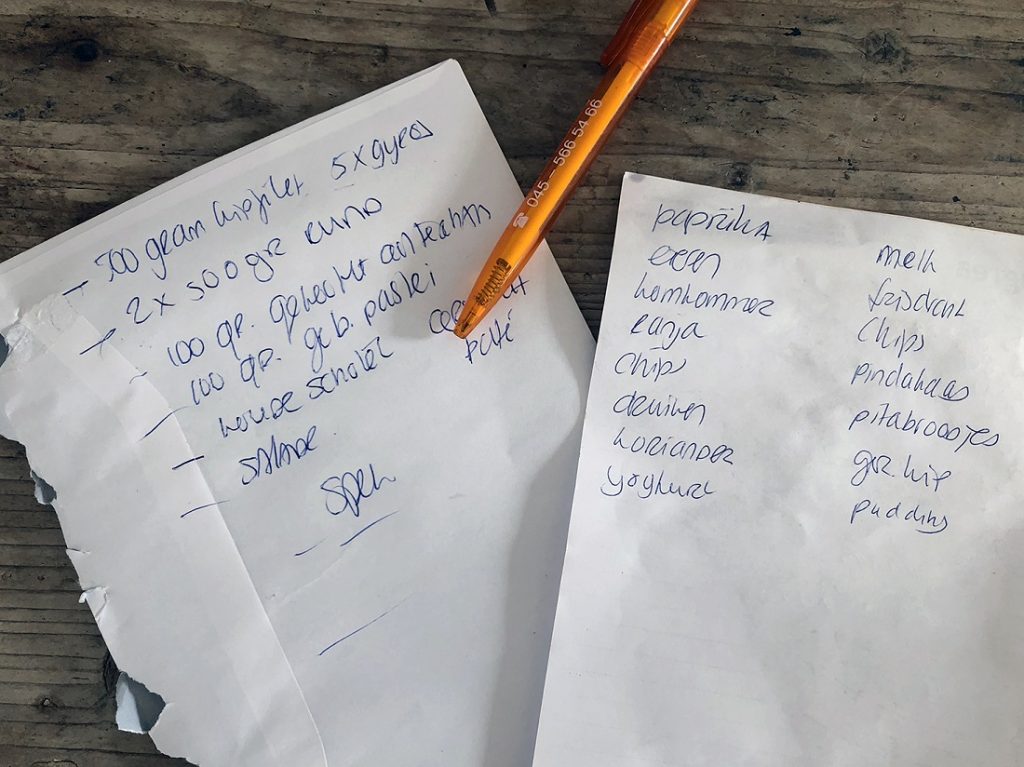 - 500 gram kipfilet 5 x gyros
- 2 x 500 gr
- 100 gr. gehakt
- 100 gr. geb. pastei
- koude schotel paté
- salade
spek
☎ 045 - 566 54 66
paprika
eieren
komkommer
ranja
chips
druiven
koriander
yoghurt
melk
frisdrank
chips
pindakaas
pitabroodjes
gr. kip
pudding